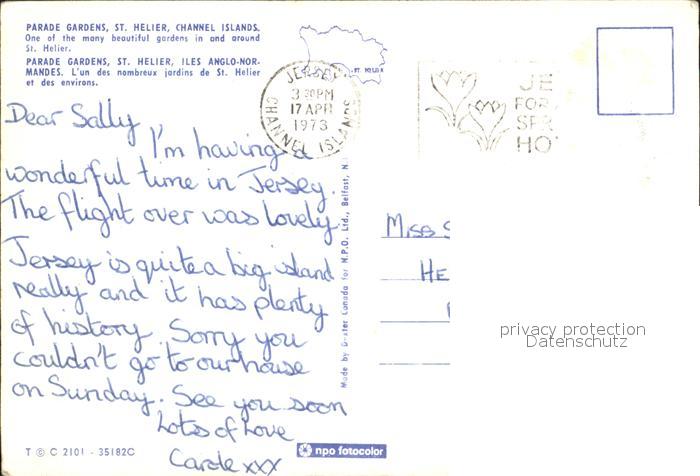 PARADE GARDENS, ST. HELIER, CHANNEL ISLANDS.
One of the many beautiful gardens in and around
St. Helier.
PARADE GARDENS, ST. HELIER, ILES ANGLO-NOR-
MANDES. L'un des nombreux jardins de St. Helier
et des environs.
ST. HELIER
JERSEY
3 30PM
17 APR
1973
CHANNEL ISLANDS
JE
FOR
SPR
HO
Dear Sally,
I'm having a
wonderful time in Jersey.
The flight over was lovely.
Jersey is quite a big island
really and it has plenty
of history. Sorry you
couldn't go to our house
on Sunday. See you soon
Lots of Love
Carole xxx
Made by Dexter Canada for N.P.O. Ltd., Belfast, N.
Miss S
HE
privacy protection
Datenschutz
T © C 2101 - 35182C
npo fotocolor